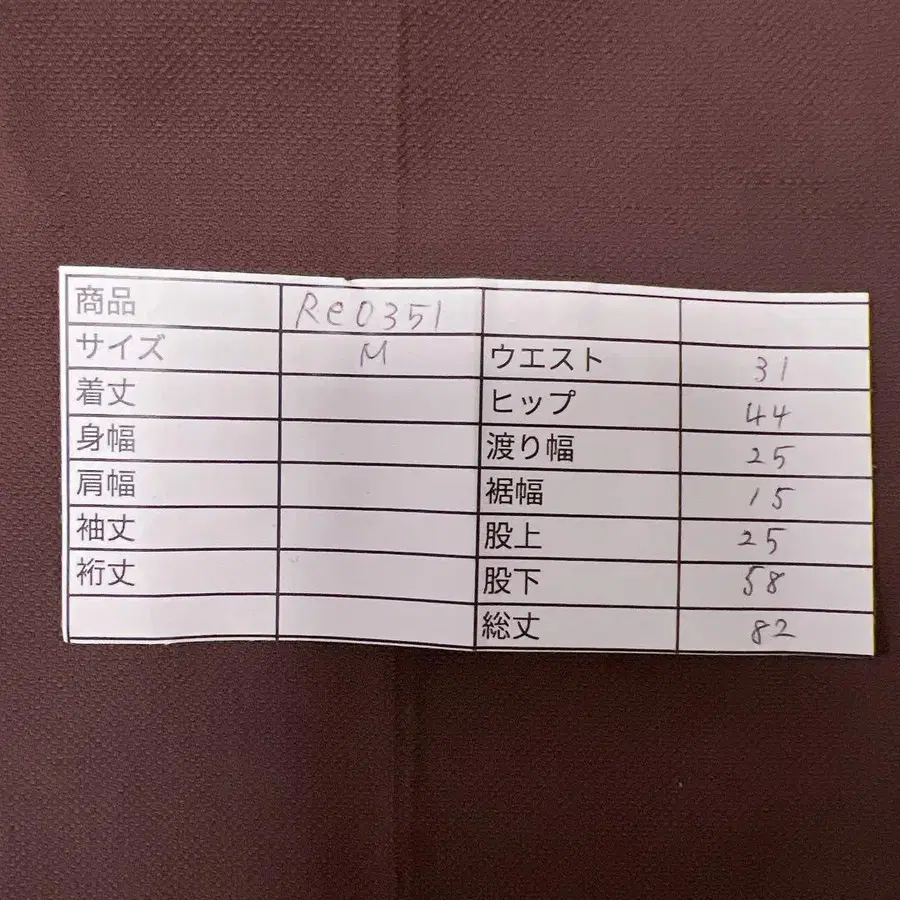 商品 Re0351
サイズ M ウエスト 31
着丈 ヒップ 44
身幅 渡り幅 25
肩幅 裾幅 15
袖丈 股上 25
裄丈 股下 58
総丈 82